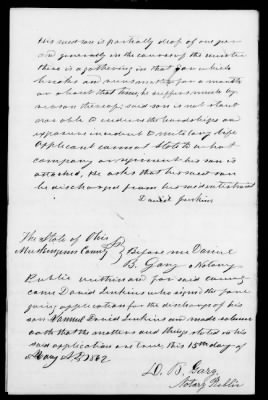 His said son is partially deaf of one year
and generally in the coming of the winter
there is a gathering in that year which
breaks and runs matter for a month
or about that time, he suffers much by
reason thereof; said son is not stout
nor able to endure the hardships and
exposure incident to military life
Applicant cannot State to what
company or regiment his son is
attached, He asks that his said son
be discharged from his
David Jenkins
The State of Ohio
Muskingum County SS Before me Daniel
B. Gary Notary
Public within and for said county
came David Jenkins who signed the fore
going application for the discharge of his
son Samuel David Jenkins and made solemn
oath that the matters and things stated in his
said application are true, this 15th day of
May A.D. 1862
D. B. Gary,
Notary Public